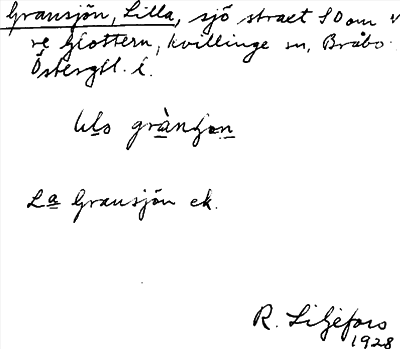 Gransjön, Lilla, sjö straet SO om v
re Glottern, Kvillinge sn, Bråbo
Östergtl. l.
lilo grànʃon
La Gransjön ek.
R. Liljefors
1928